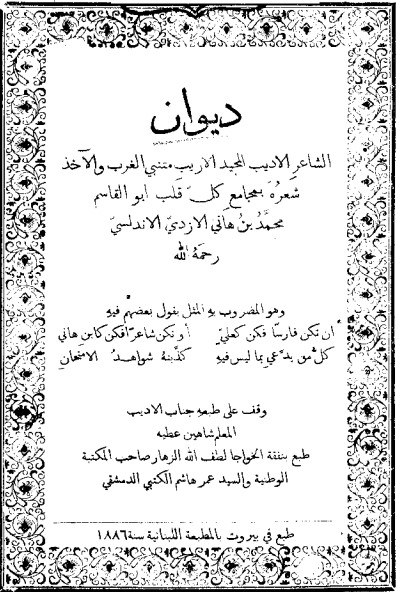 ديوان
الشاعر الاديب المجيد الاريب متنبي الغرب والآخذ
شعرُهُ بمجامع كلّ قلب ابو القاسم
محمَّد بنُ هاني الازديّ الاندلسيّ
رحمهُ الله
وهو المضروب بهِ المثل بقول بعضهم فيهِ
ان تكن فارسًا فكن كعليّ او تكن شاعرًا فكن كابن هاني
كلُّ من يدَّعي بما ليس فيهِ كذَّبتهُ شواهدُ الامتحان
وقف على طبعهِ جناب الاديب
المعلم شاهين عطيه
طبع بنفقة الخواجا لطف الله الزهار صاحب المكتبة
الوطنية والسيد عمر هاشم الكتبي الدمشقي
طبع في بيروت بالمطبعة اللبنانية سنة ١٨٨٦